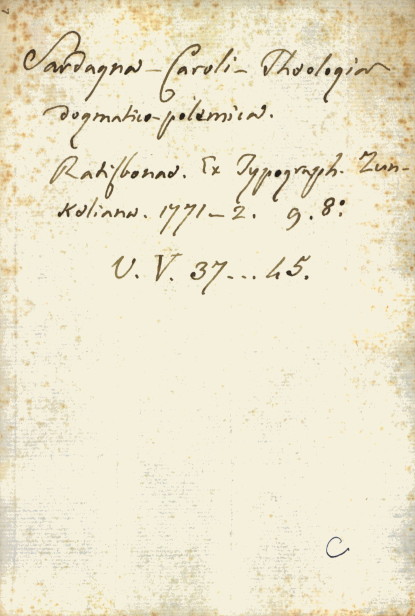 Sardagna – Caroli – Theologia
dogmatico-polemica.
Ratisbonae. Ex Typograph. Zun-
keliana. 1771–2. 9. 8:
V. V. 37...45.
C